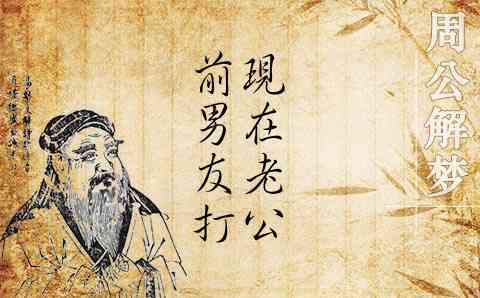 周公解梦
現在老公
前男友打